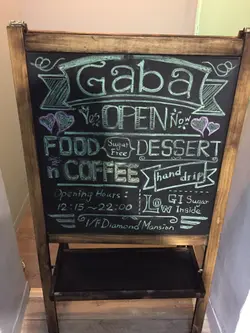 Gaba
Yes OPEN Now
FOOD Sugar Free DESSERT
n COFFEE hand drip
Opening Hours : Low GI Sugar
12:15~22:00 Inside
1/F Diamond Mansion